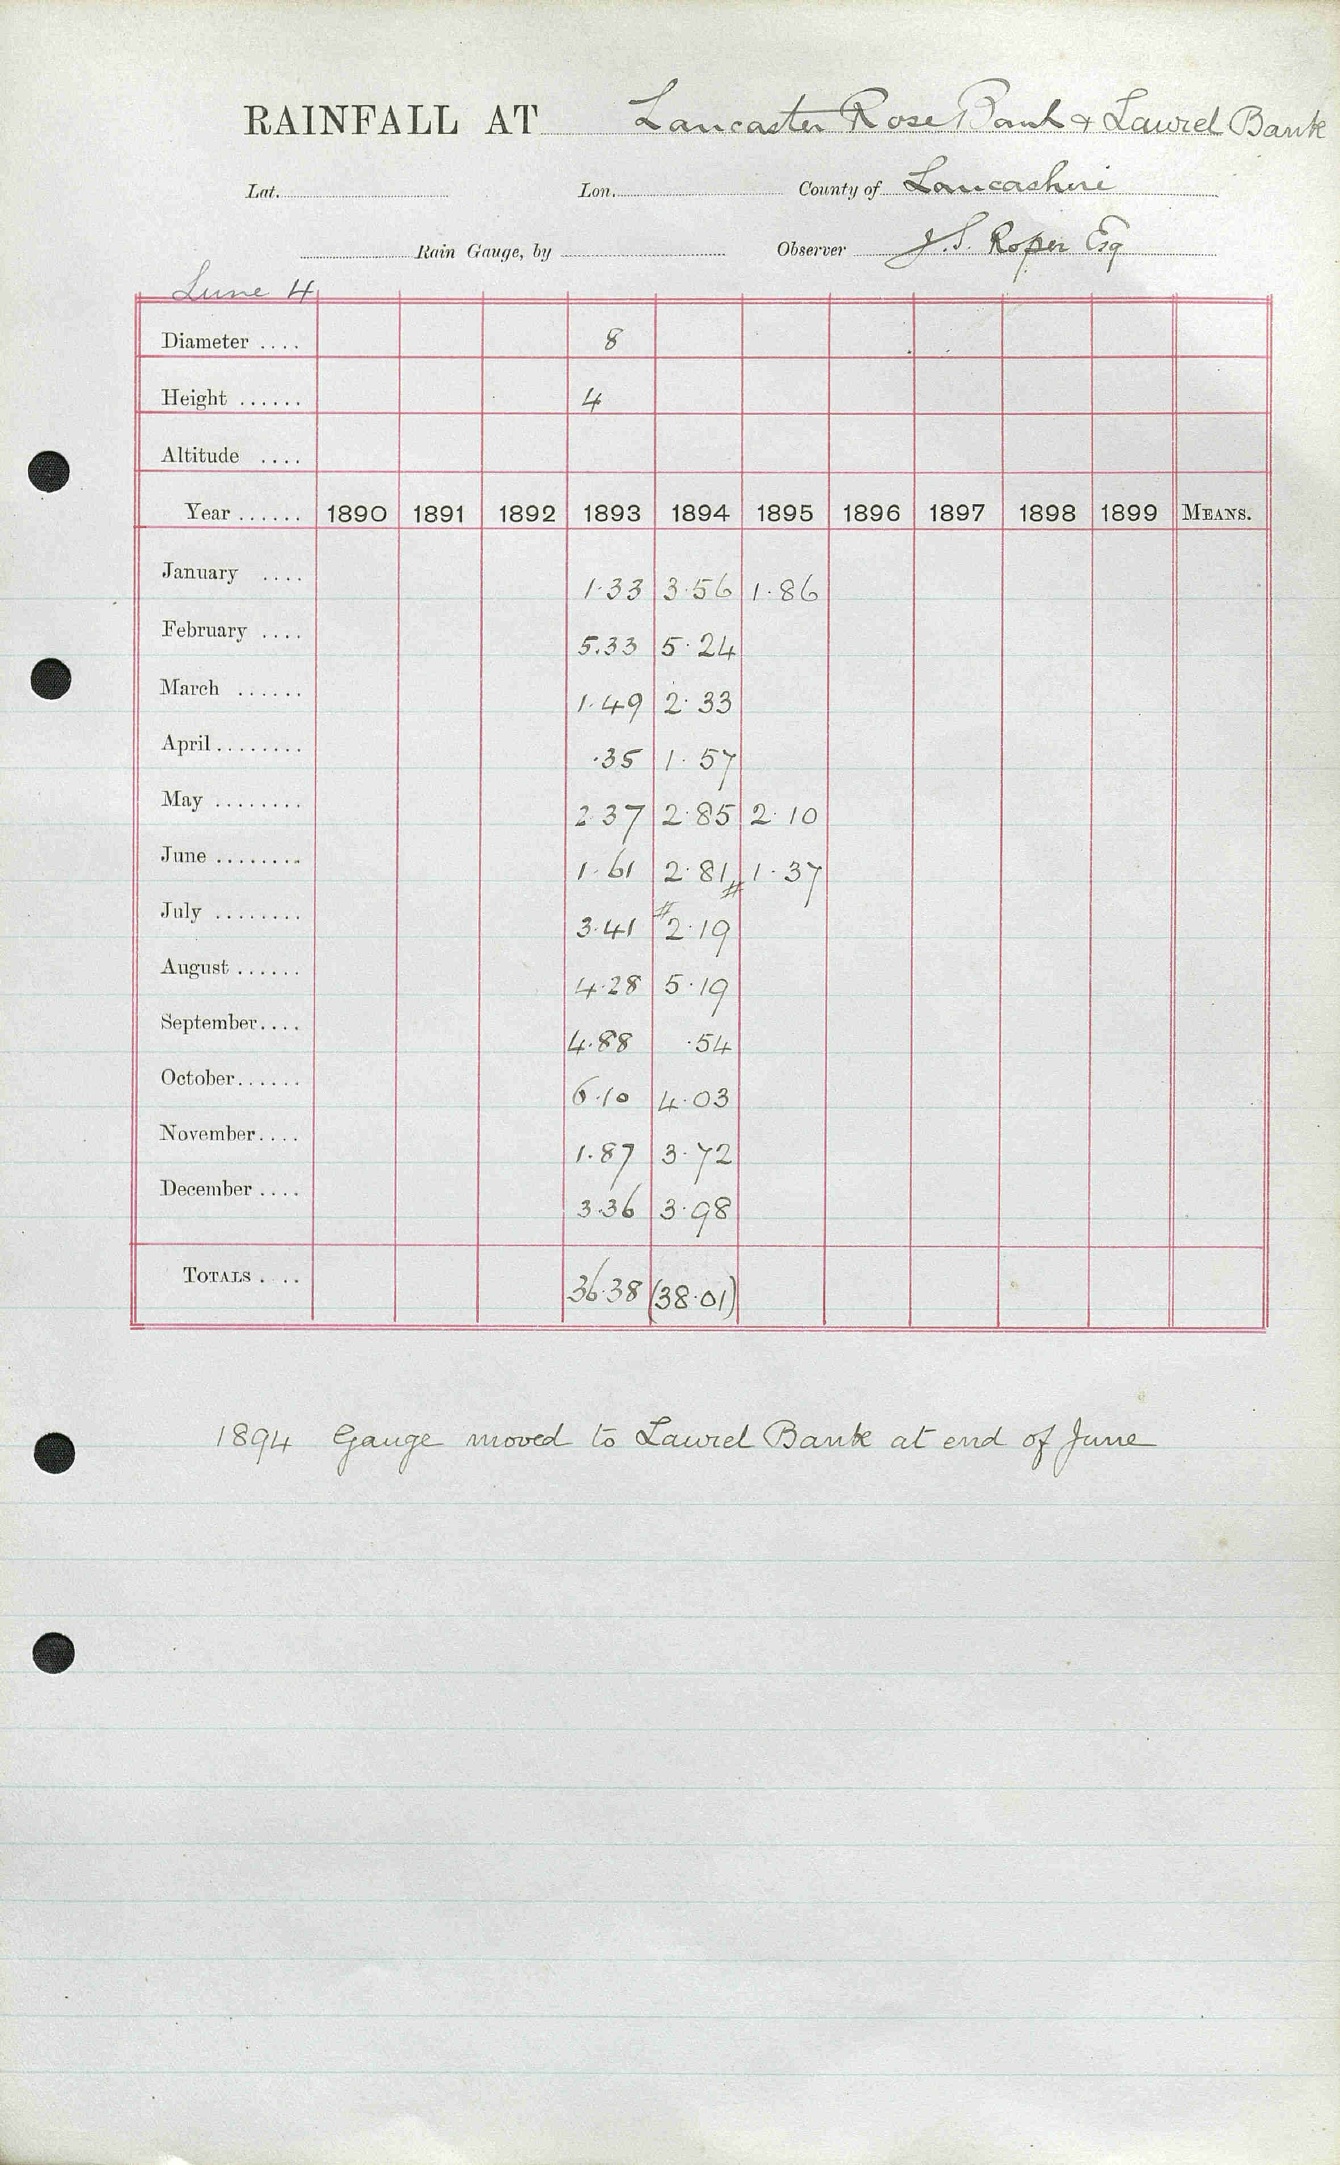 RAINFALL AT Lancaster Rose Bank & Laurel Bank
Lat. Lon. County of Lancashire
Rain Gauge, by Observer J. S. Roper Esq
Lune 4
Diameter .... 8
Height ...... 4
Altitude ....
Year ...... 1890 1891 1892 1893 1894 1895 1896 1897 1898 1899 MEANS.
January .... 1.33 3.56 1.86
February .... 5.33 5.24
March ...... 1.49 2.33
April ........ .35 1.57
May ........ 2.37 2.85 2.10
June ........ 1.61 2.81 # 1.37
July ........ 3.41 # 2.19
August ...... 4.28 5.19
September.... 4.88 .54
October...... 6.10 4.03
November.... 1.87 3.72
December .... 3.36 3.98
TOTALS .... 36.38 (38.01)
1894 Gauge moved to Laurel Bank at end of June